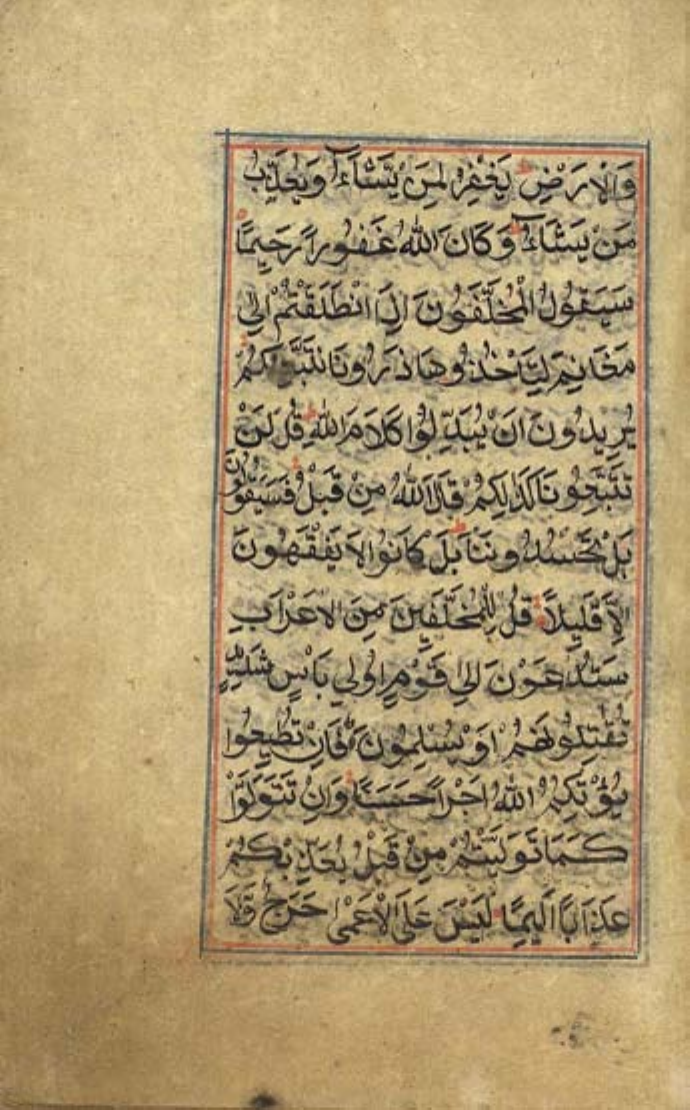 وَالْاَرْضِ يَغْفِرُ لِمَنْ يَشَآءُ وَيُعَذِّبُ
مَنْ يَشَآءُ وَكَانَ اللهُ غَفُورًا رَحِيمًا
سَيَقُولُ الْمُخَلَّفُونَ اِذَا انْطَلَقْتُمْ اِلٰى
مَغَانِمَ لِتَاْخُذُوهَا ذَرُونَا نَتَّبِعْكُمْ
يُرِيدُونَ اَنْ يُبَدِّلُوا كَلَامَ اللهِ قُلْ لَنْ
تَتَّبِعُونَا كَذٰلِكُمْ قَالَ اللهُ مِنْ قَبْلُ فَسَيَقُولُونَ
بَلْ تَحْسُدُونَنَا بَلْ كَانُوا لَا يَفْقَهُونَ
اِلَّا قَلِيلًا قُلْ لِلْمُخَلَّفِينَ مِنَ الْاَعْرَابِ
سَتُدْعَوْنَ اِلٰى قَوْمٍ اُولِى بَاْسٍ شَدِيدٍ
تُقٰتِلُونَهُمْ اَوْ يُسْلِمُونَ فَاِنْ تُطِيعُوا
يُؤْتِكُمُ اللهُ اَجْرًا حَسَنًا وَاِنْ تَتَوَلَّوْا
كَمَا تَوَلَّيْتُمْ مِنْ قَبْلُ يُعَذِّبْكُمْ
عَذَابًا اَلِيمًا لَيْسَ عَلَى الْاَعْمٰى حَرَجٌ وَلَا